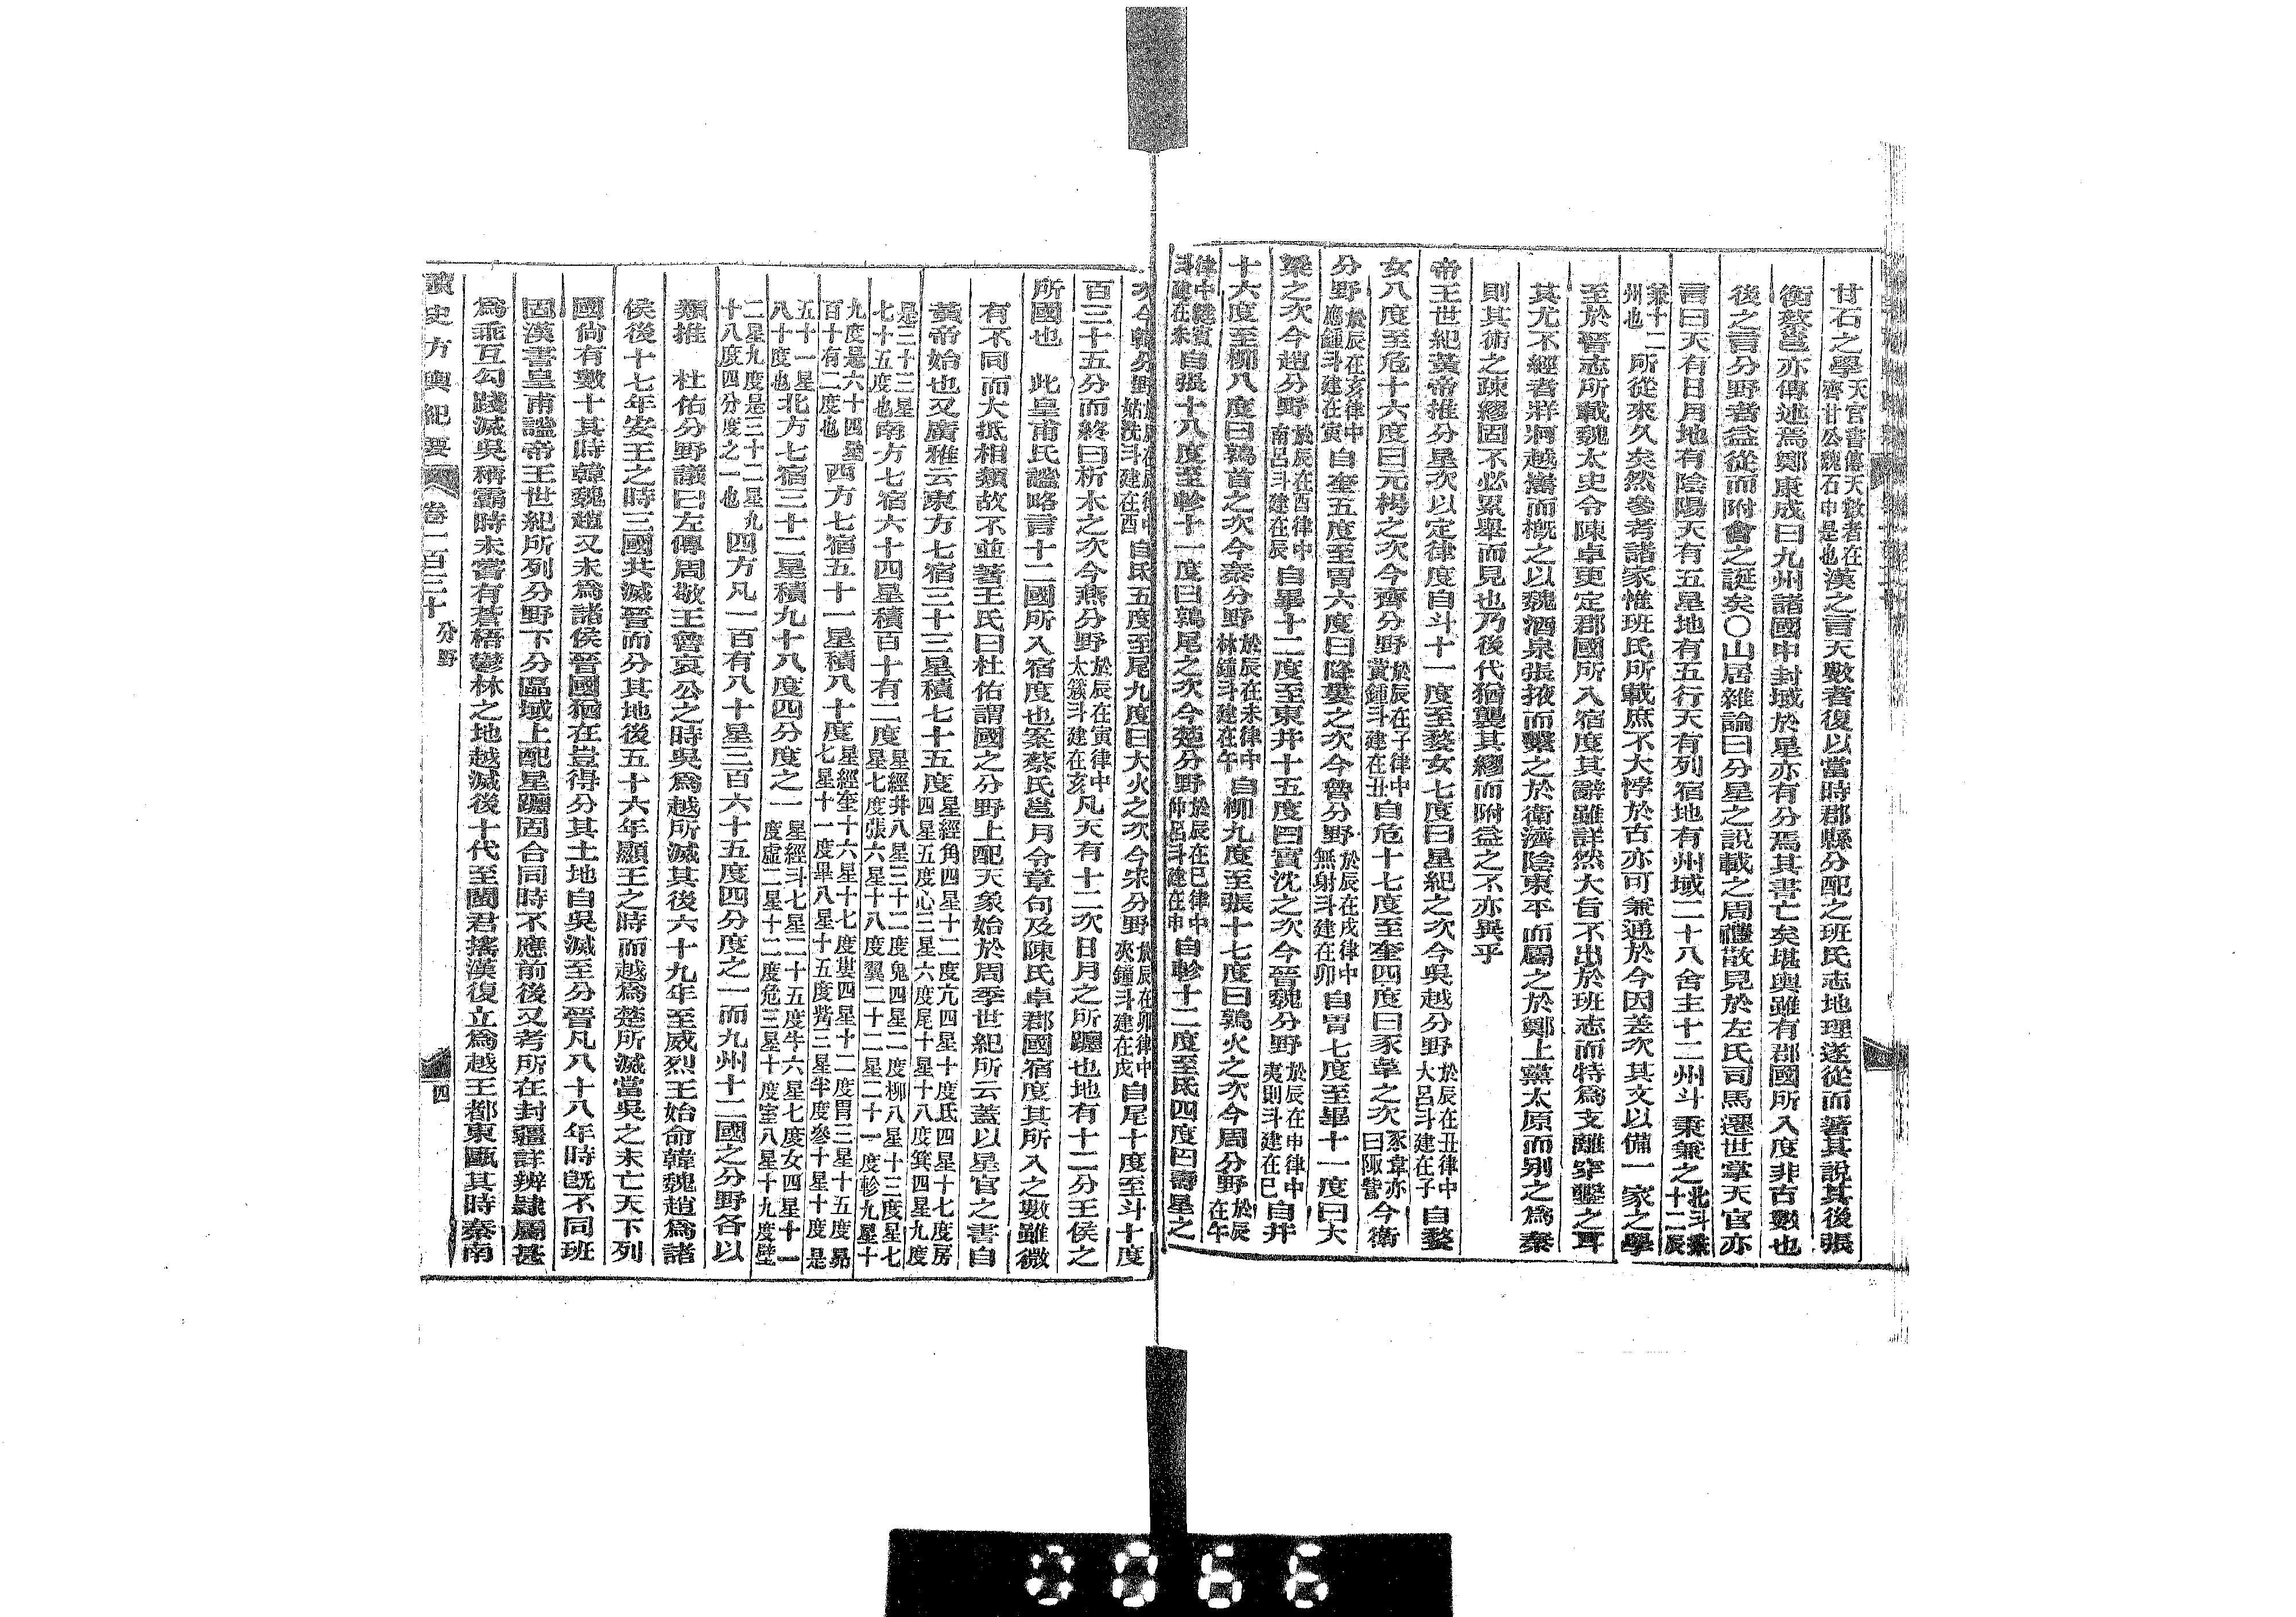 甘石之學天官書傳天數者在齊甘公魏石申是也漢之言天數者復以當時郡縣分配之班氏志地理遂從而著其說其後張
衡蔡邕亦傳述焉鄭康成曰九州諸國中封域於星亦有分焉其書亡矣堪輿雖有郡國所入度非古數也
後之言分野者益從而附會之誕矣〇山居雜論曰分星之說載之周禮散見於左氏司馬遷世掌天官亦
言曰天有日月地有陰陽天有五星地有五行天有列宿地有州域二十八舍主十二州斗秉兼之北斗秉十二辰
兼十二州也所從來久矣然參考諸家惟班氏所載庶不大悖於古亦可兼通於今因差次其文以備一家之學
至於晉志所載魏太史令陳卓更定郡國所入宿度其辭雖詳然大旨不出於班志而特為支離穿鑿之耳
其尤不經者牂牁越嶲而概之以魏酒泉張掖而繫之於衛濟陰東平而屬之於鄭上黨太原而別之為秦
則其術之疎繆固不必累舉而見也乃後代猶襲其繆而附益之不亦異乎
帝王世紀黃帝推分星次以定律度自斗十一度至婺女七度曰星紀之次今吳越分野於辰在丑律中大呂斗建在子自婺
女八度至危十六度曰元枵之次今齊分野於辰在子律中黃鍾斗建在丑自危十七度至奎四度曰豕韋之次豕韋亦曰陬訾今衛
分野於辰在亥律中應鍾斗建在寅自奎五度至胃六度曰降婁之次今魯分野於辰在戌律中無射斗建在卯自胃七度至畢十一度曰大
梁之次今趙分野於辰在酉律中南呂斗建在辰自畢十二度至東井十五度曰實沈之次今晉魏分野於辰在申律中夷則斗建在巳自井
十六度至柳八度曰鶉首之次今秦分野於辰在未律中林鍾斗建在午自柳九度至張十七度曰鶉火之次今周分野於辰在午
律中蕤賓斗建在未自張十八度至軫十一度曰鶉尾之次今楚分野於辰在巳律中仲呂斗建在申自軫十二度至氐四度曰壽星之
次今韓分野於辰在辰律中姑洗斗建在酉自氐五度至尾九度曰大火之次今宋分野於辰在卯律中夾鍾斗建在戌自尾十度至斗十度
百三十五分而終曰析木之次今燕分野於辰在寅律中太簇斗建在亥凡天有十二次日月之所躔也地有十二分王侯之
所國也 此皇甫氏謐略言十二國所入宿度也案蔡氏邕月令章句及陳氏卓郡國宿度其所入之數雖微
有不同而大抵相類故不並著王氏曰杜佑謂國之分野上配天象始於周季世紀所云蓋以星官之書自
黃帝始也又廣雅云東方七宿三十三星積七十五度星經角四星十二度亢四星十度氐四星十七度房四星五度心三星六度尾十星十八度箕四星九度
是三十三星七十五度也南方七宿六十四星積百十有二度星經井八星三十二度鬼四星二度柳八星十三度星七星七度張六星十八度翼二十二星二十一度軫九星十
九度是六十四星百十有二度也四方七宿五十一星積八十度星經奎十六星十七度婁四星十二度胃三星十五度昴七星十一度畢八星十五度觜三星半度參十星十度是
五十一星八十度也北方七宿三十二星積九十八度四分度之一星經斗七星二十五度牛六星七度女四星十一度虛二星十二度危三星十度室八星十九度壁
二星九度是三十二星九十八度四分度之一也四方凡一百有八十星三百六十五度四分度之一而九州十二國之分野各以
類推 杜佑分野議曰左傳周敬王魯哀公之時吳為越所滅其後六十九年至威烈王始命韓魏趙為諸
侯後十七年安王之時三國共滅晉而分其地後五十六年顯王之時而越為楚所滅當吳之未亡天下列
國尙有數十其時韓魏趙又未為諸侯晉國猶在豈得分其土地自吳滅至分晉凡八十八年時旣不同班
固漢書皇甫謐帝王世紀所列分野下分區域上配星躔固合同時不應前後又考所在封疆詳辨隸屬甚
為乖互勾踐滅吳稱霸時未嘗有蒼梧鬱林之地越滅後十代至閩君搖漢復立為越王都東甌其時秦南
讀史方輿紀要 卷一百三十 分野 四
0066